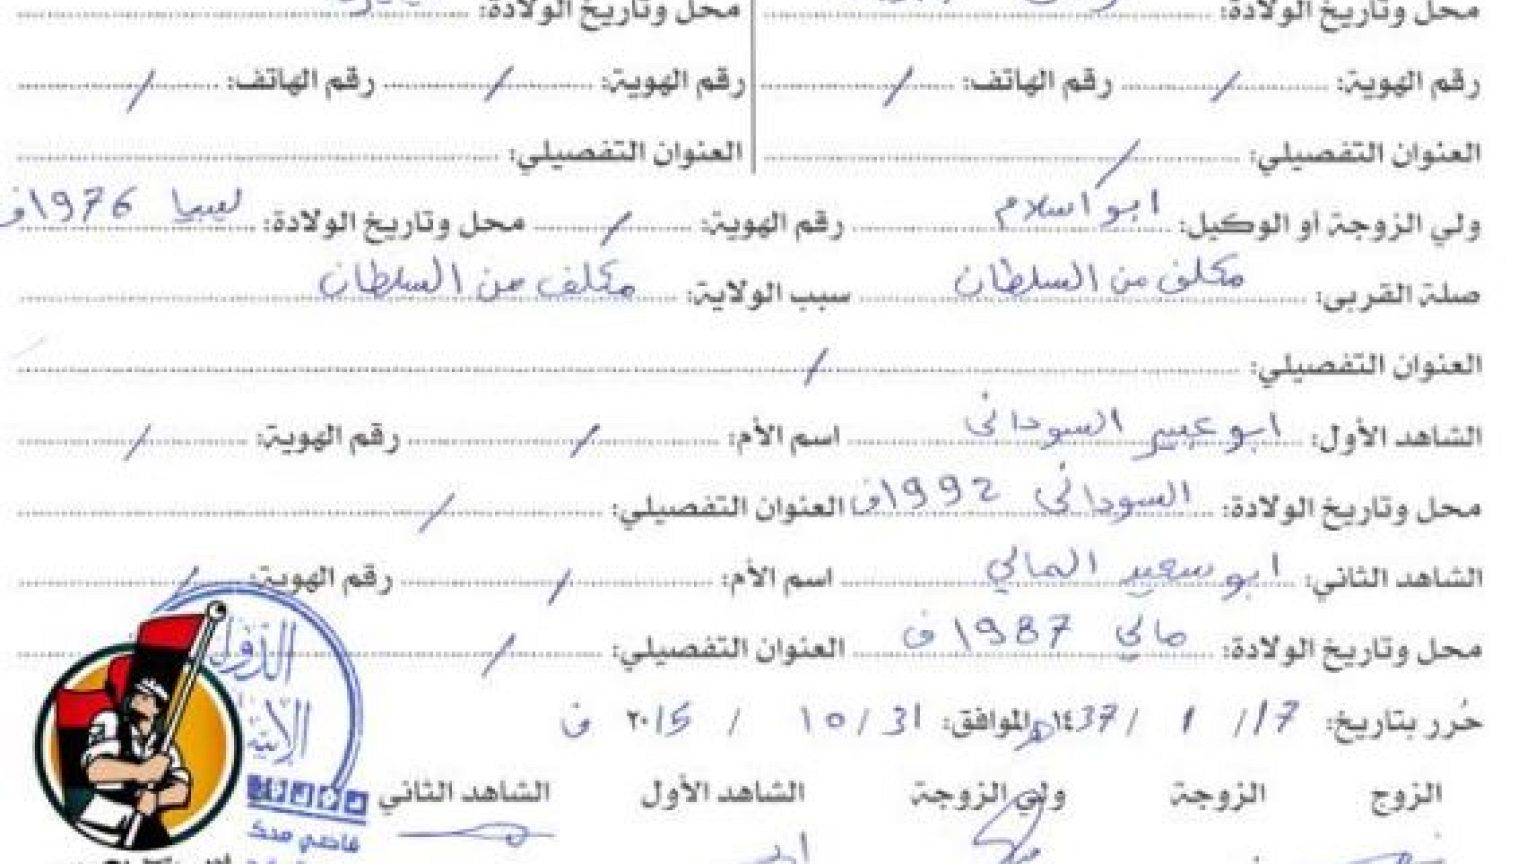 محل وتاريخ الولادة: محل وتاريخ الولادة:
رقم الهوية: / رقم الهاتف: / رقم الهوية: / رقم الهاتف: /
العنوان التفصيلي: / العنوان التفصيلي:
ولي الزوجة أو الوكيل: ابو اسلام رقم الهوية: / محل وتاريخ الولادة: ليبيا 1976ف
صلة القربى: مكلف من السلطان سبب الولاية: مكلف من السلطان
العنوان التفصيلي: /
الشاهد الأول: ابو عبير السوداني اسم الأم: / رقم الهوية: /
محل وتاريخ الولادة: السوداني 1992ف العنوان التفصيلي: /
الشاهد الثاني: ابو سعيد المالي اسم الأم: / رقم الهوية: /
محل وتاريخ الولادة: مالي 1987ف العنوان التفصيلي: /
حُرر بتاريخ: 17/ 1 /١٤37هـ الموافق: 31/ 10 / ٢٠15 ف
الزوج الزوجة ولي الزوجة الشاهد الأول الشاهد الثاني